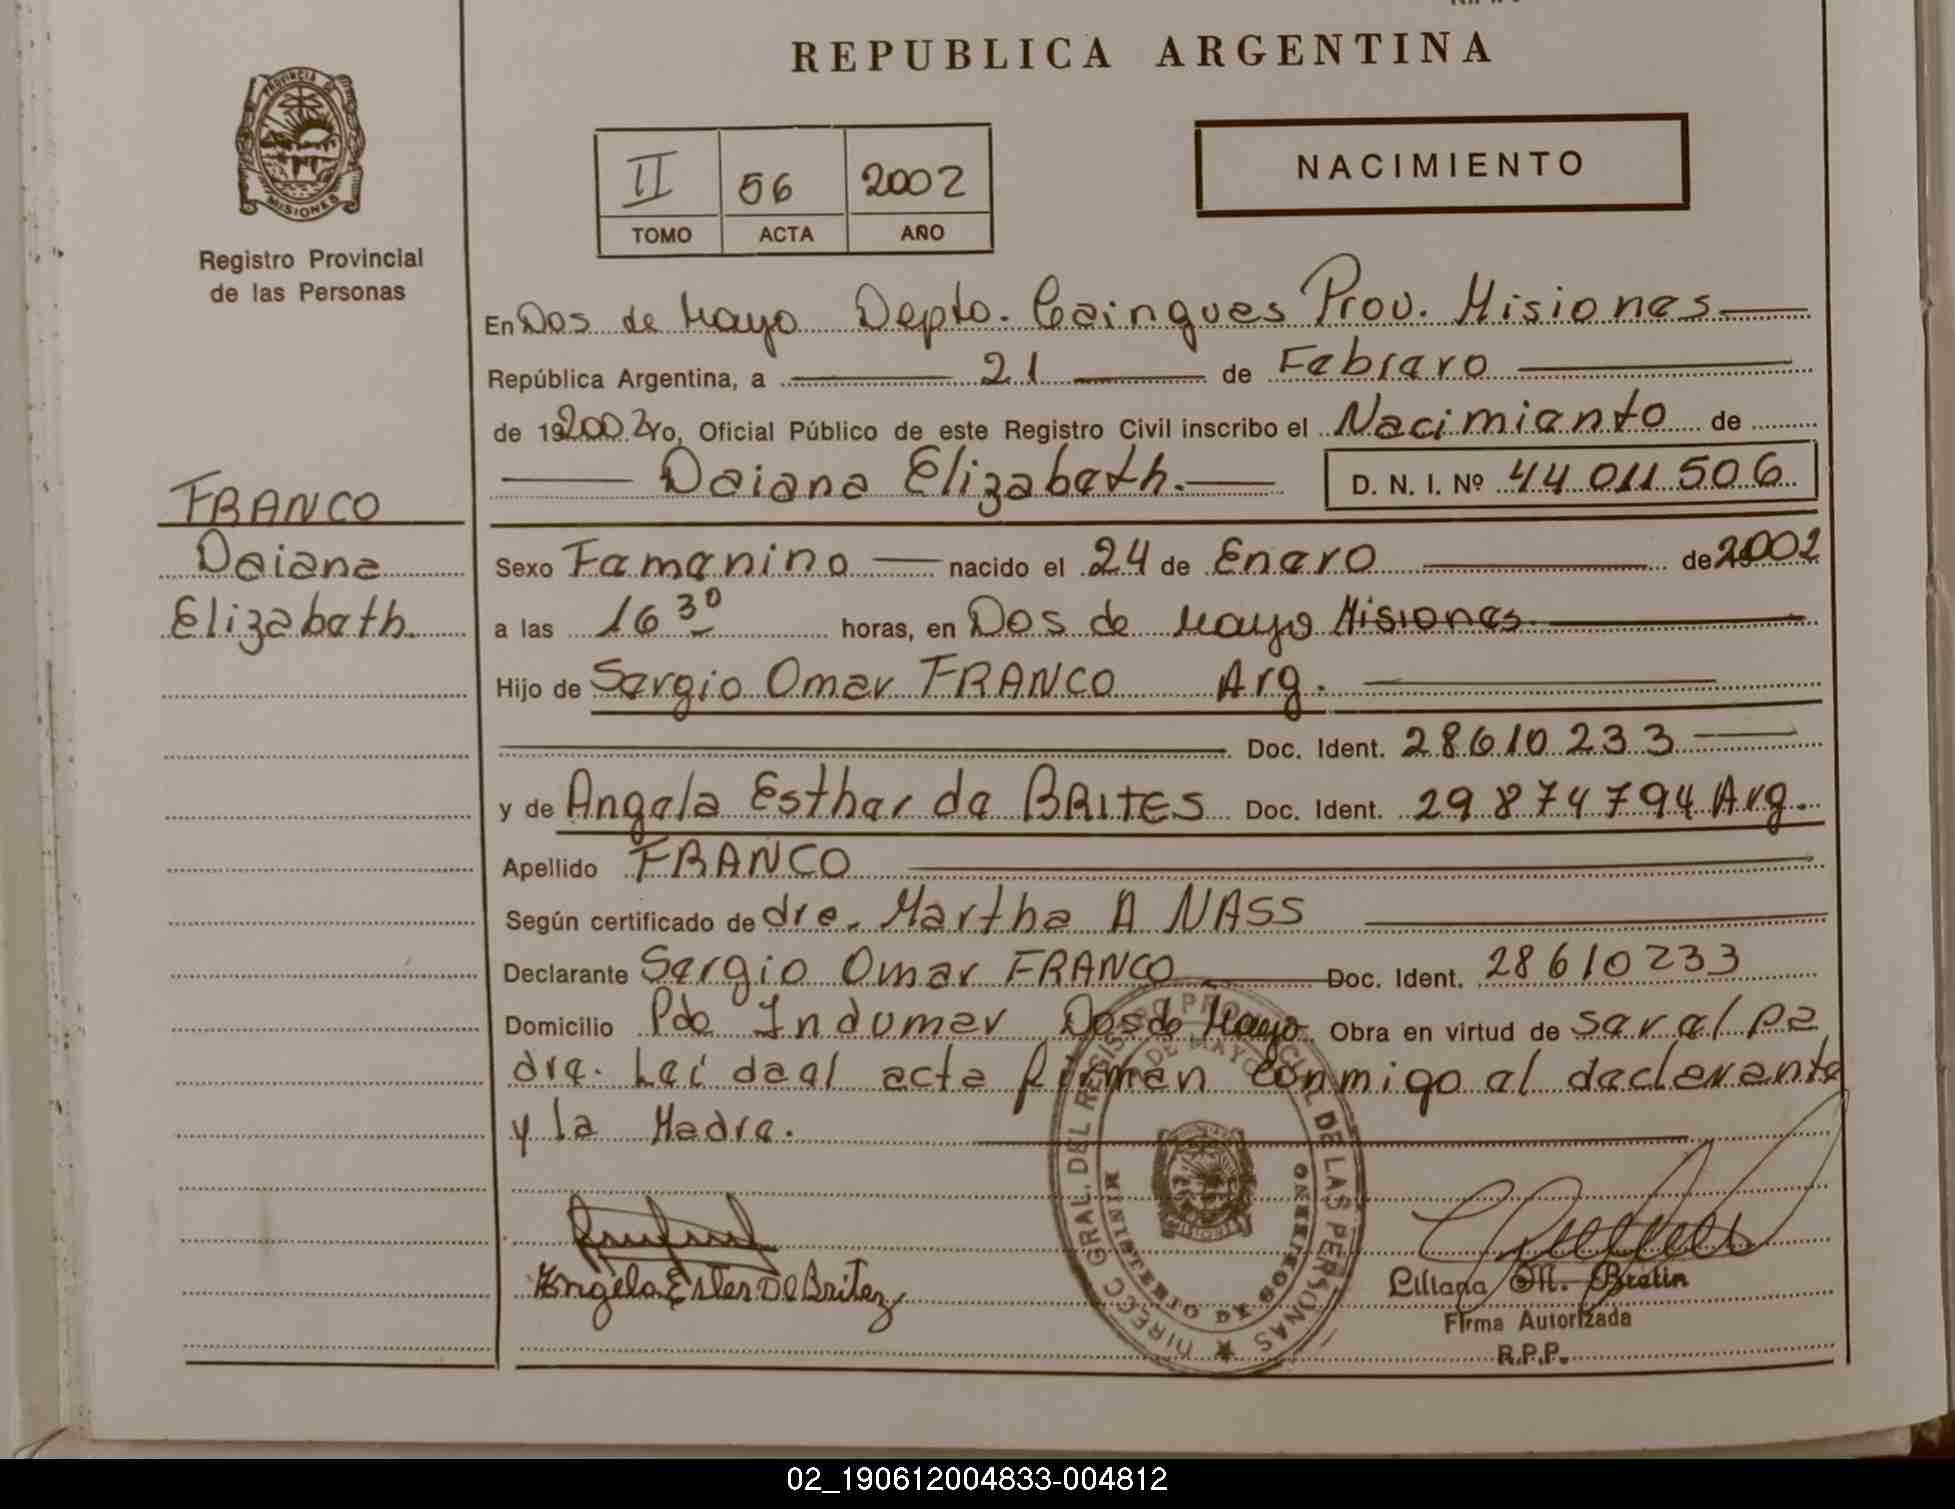 REPUBLICA ARGENTINA
PROVINCIA DE MISIONES
Registro Provincial
de las Personas
II 56 2002
TOMO ACTA AÑO
NACIMIENTO
En Dos de Mayo Depto. Cainguas Prov. Misiones
República Argentina, a 21 de Febrero
de 192002 Yo, Oficial Público de este Registro Civil inscribo el Nacimiento de
Daiana Elizabeth. D. N. I. Nº 44 011 506
FRANCO
Daiana
Elizabeth.
Sexo Femenino nacido el 24 de Enero de 2002
a las 16 30 horas, en Dos de Mayo Misiones
Hijo de Sergio Omar FRANCO Arg.
Doc. Ident. 28610 233
y de Angela Esther da BRITES Doc. Ident. 29 874794 Arg.
Apellido FRANCO
Según certificado de dra. Martha A NASS
Declarante Sergio Omar FRANCO Doc. Ident. 28610233
Domicilio Pdo Indumar Dos de Mayo Obra en virtud de ser el pa
dre. Leida el acta firman conmigo el declarante
y la Madre.
DIREC. GRAL. DEL REGISTRO PROVINCIAL DE LAS PERSONAS
DOS DE MAYO
MINISTERIO DE GOBIERNO
MISIONES
Angela Ester De Britez
Liliana M. Bratin
Firma Autorizada
R.P.P.
02_190612004833-004812